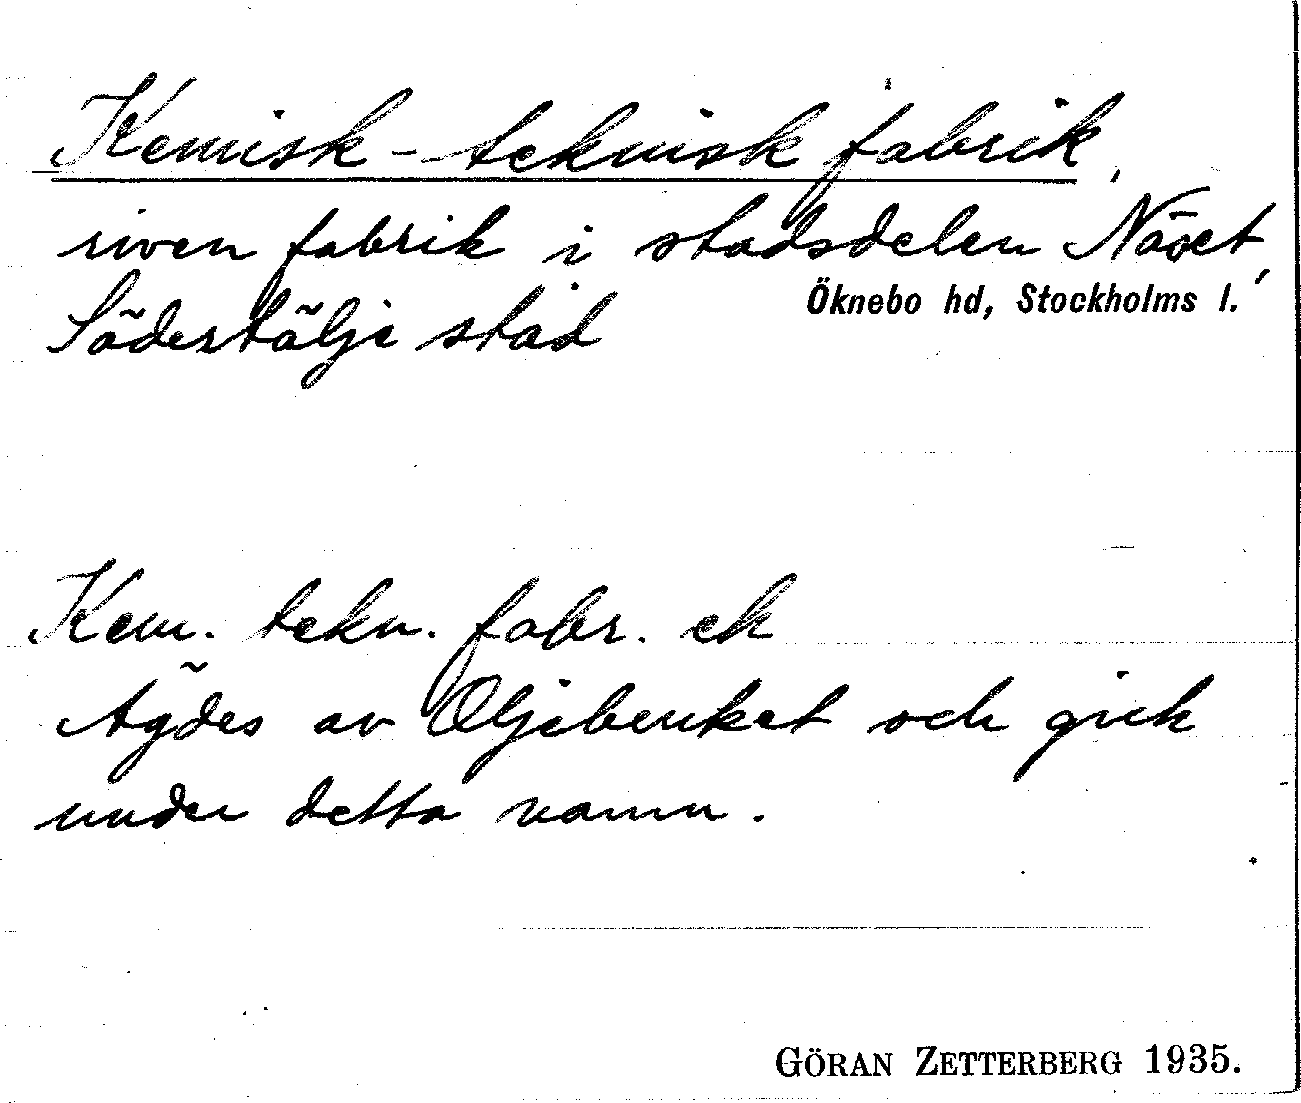 Kemisk-teknisk fabrik,
riven fabrik i stadsdelen Näset,
Södertälje stad Öknebo hd, Stockholms l.
Kem. tekn. fabr. ek
Ägdes av Oljeberket och gick
under detta namn.
GÖRAN ZETTERBERG 1935.